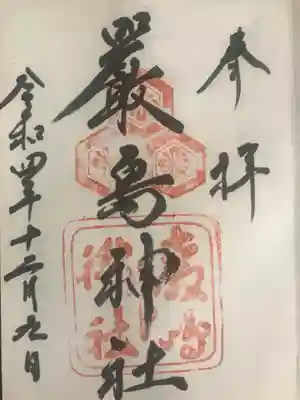 奉拝
嚴島神社
令和四年十二月九日
嚴島
神社